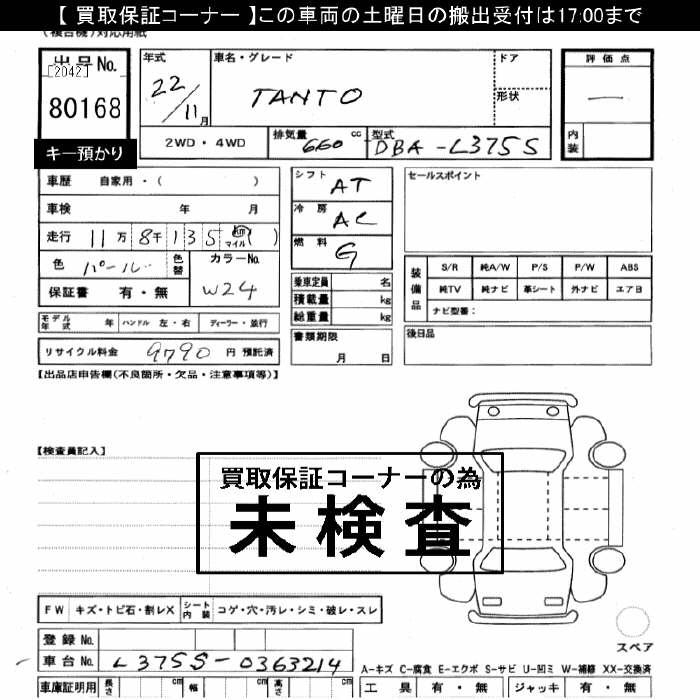 【 買取保証コーナー 】この車両の土曜日の搬出受付は17:00まで
(複合機)対応用紙
出品No.
[2042]
80168
キー預かり
年式 22/11月
車名・グレード TANTO
ドア
形状
評価点 —
内装
2WD・4WD
排気量 660 cc
型式 DBA-L375S
車歴 自家用・( )
車検 年 月
走行 11万8千135 km マイル ( )
色 パール
色替
カラーNo. W24
保証書 有・無
シフト AT
冷房 AC
燃料 G
乗車定員 名
積載量 kg
総重量 kg
セールスポイント
装備品
S/R 純A/W P/S P/W ABS
純TV 純ナビ 革シート 外ナビ エアB
ナビ型番:
モデル年式 年 ハンドル 左・右 ディーラー・並行
リサイクル料金 9790 円 預託済
書類期限 月 日
後日品
【出品店申告欄(不良箇所・欠品・注意事項等)】
【検査員記入】
買取保証コーナーの為
未検査
FW キズ・トビ石・割レX シート内装 コゲ・穴・汚レ・シミ・破レ・スレ
登録No.
車台No. L375S-0363214
スペア
A-キズ C-腐食 E-エクボ S-サビ U-凹ミ W-補修 XX-交換済
車庫証明用 長さ cm 幅 cm 高さ cm
工具 有・無 ジャッキ 有・無